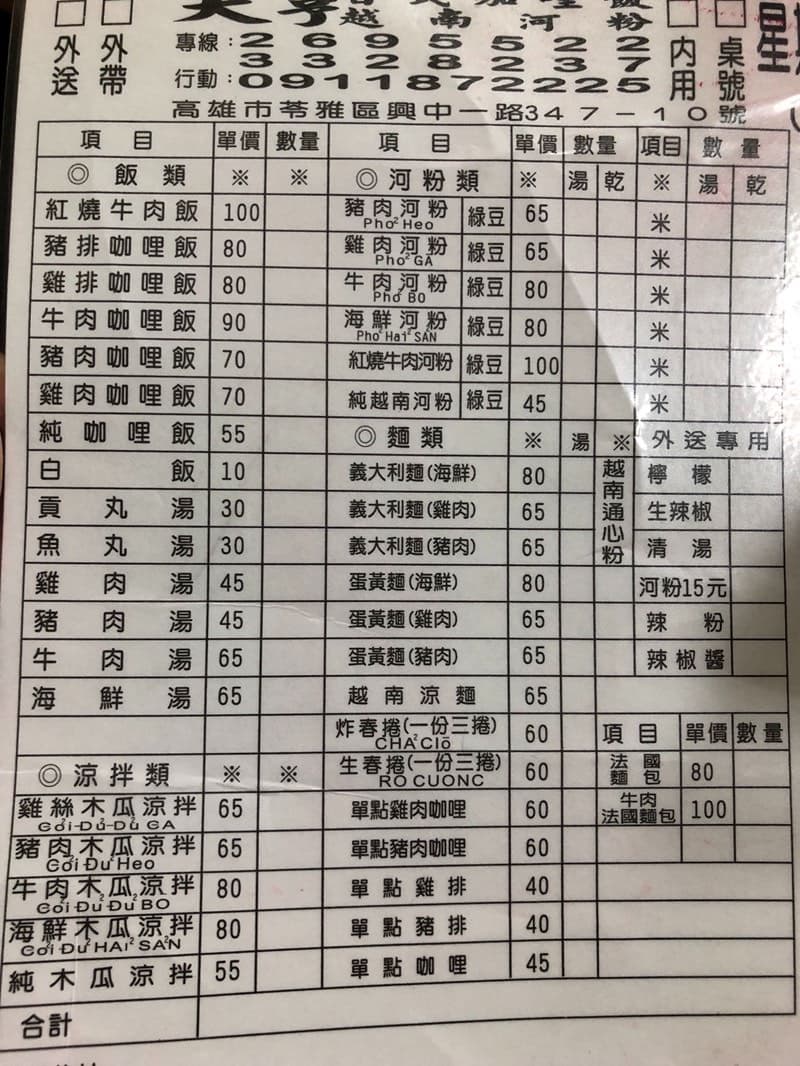 越南河粉
外送 外帶 內用 桌號 星
專線：2695522
3328237
行動：0911872225
高雄市苓雅區興中一路347－10號
項目 單價 數量 項目 單價 數量 項目 數量
◎飯類 ※ ※ ◎河粉類 ※ 湯 乾 ※ 湯 乾
紅燒牛肉飯 100 豬肉河粉 Pho² Heo 綠豆 65 米
豬排咖哩飯 80 雞肉河粉 Pho² GÀ 綠豆 65 米
雞排咖哩飯 80 牛肉河粉 Pho² BO 綠豆 80 米
牛肉咖哩飯 90 海鮮河粉 Pho² Hai² SẢN 綠豆 80 米
豬肉咖哩飯 70 紅燒牛肉河粉 綠豆 100 米
雞肉咖哩飯 70 純越南河粉 綠豆 45 米
純咖哩飯 55 ◎麵類 ※ 湯 ※ 外送專用
白飯 10 義大利麵(海鮮) 80 越南通心粉 檸檬
貢丸湯 30 義大利麵(雞肉) 65 生辣椒
魚丸湯 30 義大利麵(豬肉) 65 清湯
雞肉湯 45 蛋黃麵(海鮮) 80 河粉15元
豬肉湯 45 蛋黃麵(雞肉) 65 辣粉
牛肉湯 65 蛋黃麵(豬肉) 65 辣椒醬
海鮮湯 65 越南涼麵 65
炸春捲(一份三捲) CHA² Clō 60 項目 單價 數量
◎涼拌類 ※ ※ 生春捲(一份三捲) RO CUONC 60 法國麵包 80
雞絲木瓜涼拌 Gơỉ-Đủ-Đủ GA 65 單點雞肉咖哩 60 牛肉法國麵包 100
豬肉木瓜涼拌 Gơỉ Đu² Heo 65 單點豬肉咖哩 60
牛肉木瓜涼拌 Gơỉ Đu² Đu² BO 80 單點雞排 40
海鮮木瓜涼拌 Gơỉ Đu² HAI² SA²N 80 單點豬排 40
純木瓜涼拌 55 單點咖哩 45
合計